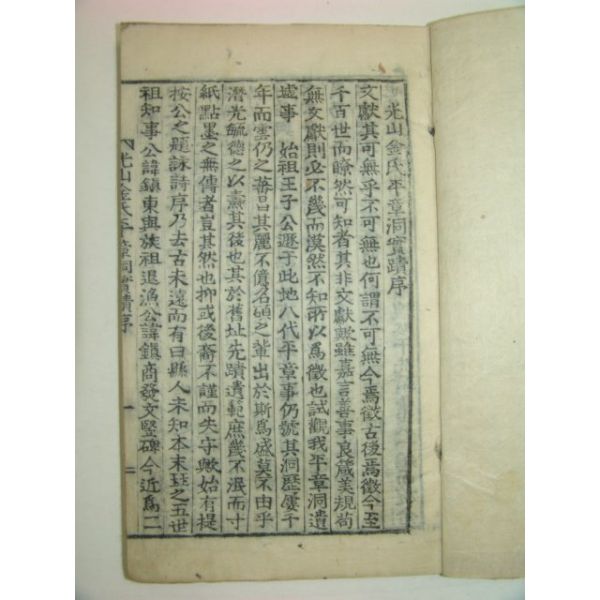 光山金氏平章洞實蹟序
文獻其可無乎不可無也何謂不可無今焉徵古後焉徵今至
千百世而瞭然可知者其非文獻歟雖嘉言善事良箴美規苟
無文獻則必不幾而漠然不知所以爲徵也試觀我平章洞遺
墟事 始祖王子公遯于此地八代平章事仍號其洞歷屢千
年而雲仍之蕃昌其麗不億名碩之輩出於斯爲盛莫不由乎
潛光毓德之以燾其後也其於舊址先蹟遺範庶幾不泯而寸
紙點墨之無傳者豈其然也抑或後裔不謹而失守歟始有提
按公之題詠詩序乃去古未遠而有曰縣人未知本末玆之五世
祖知事公諱鎭東與族祖退漁公諱鎭商發文竪碑今近爲二
光山金氏平章洞實蹟序 一